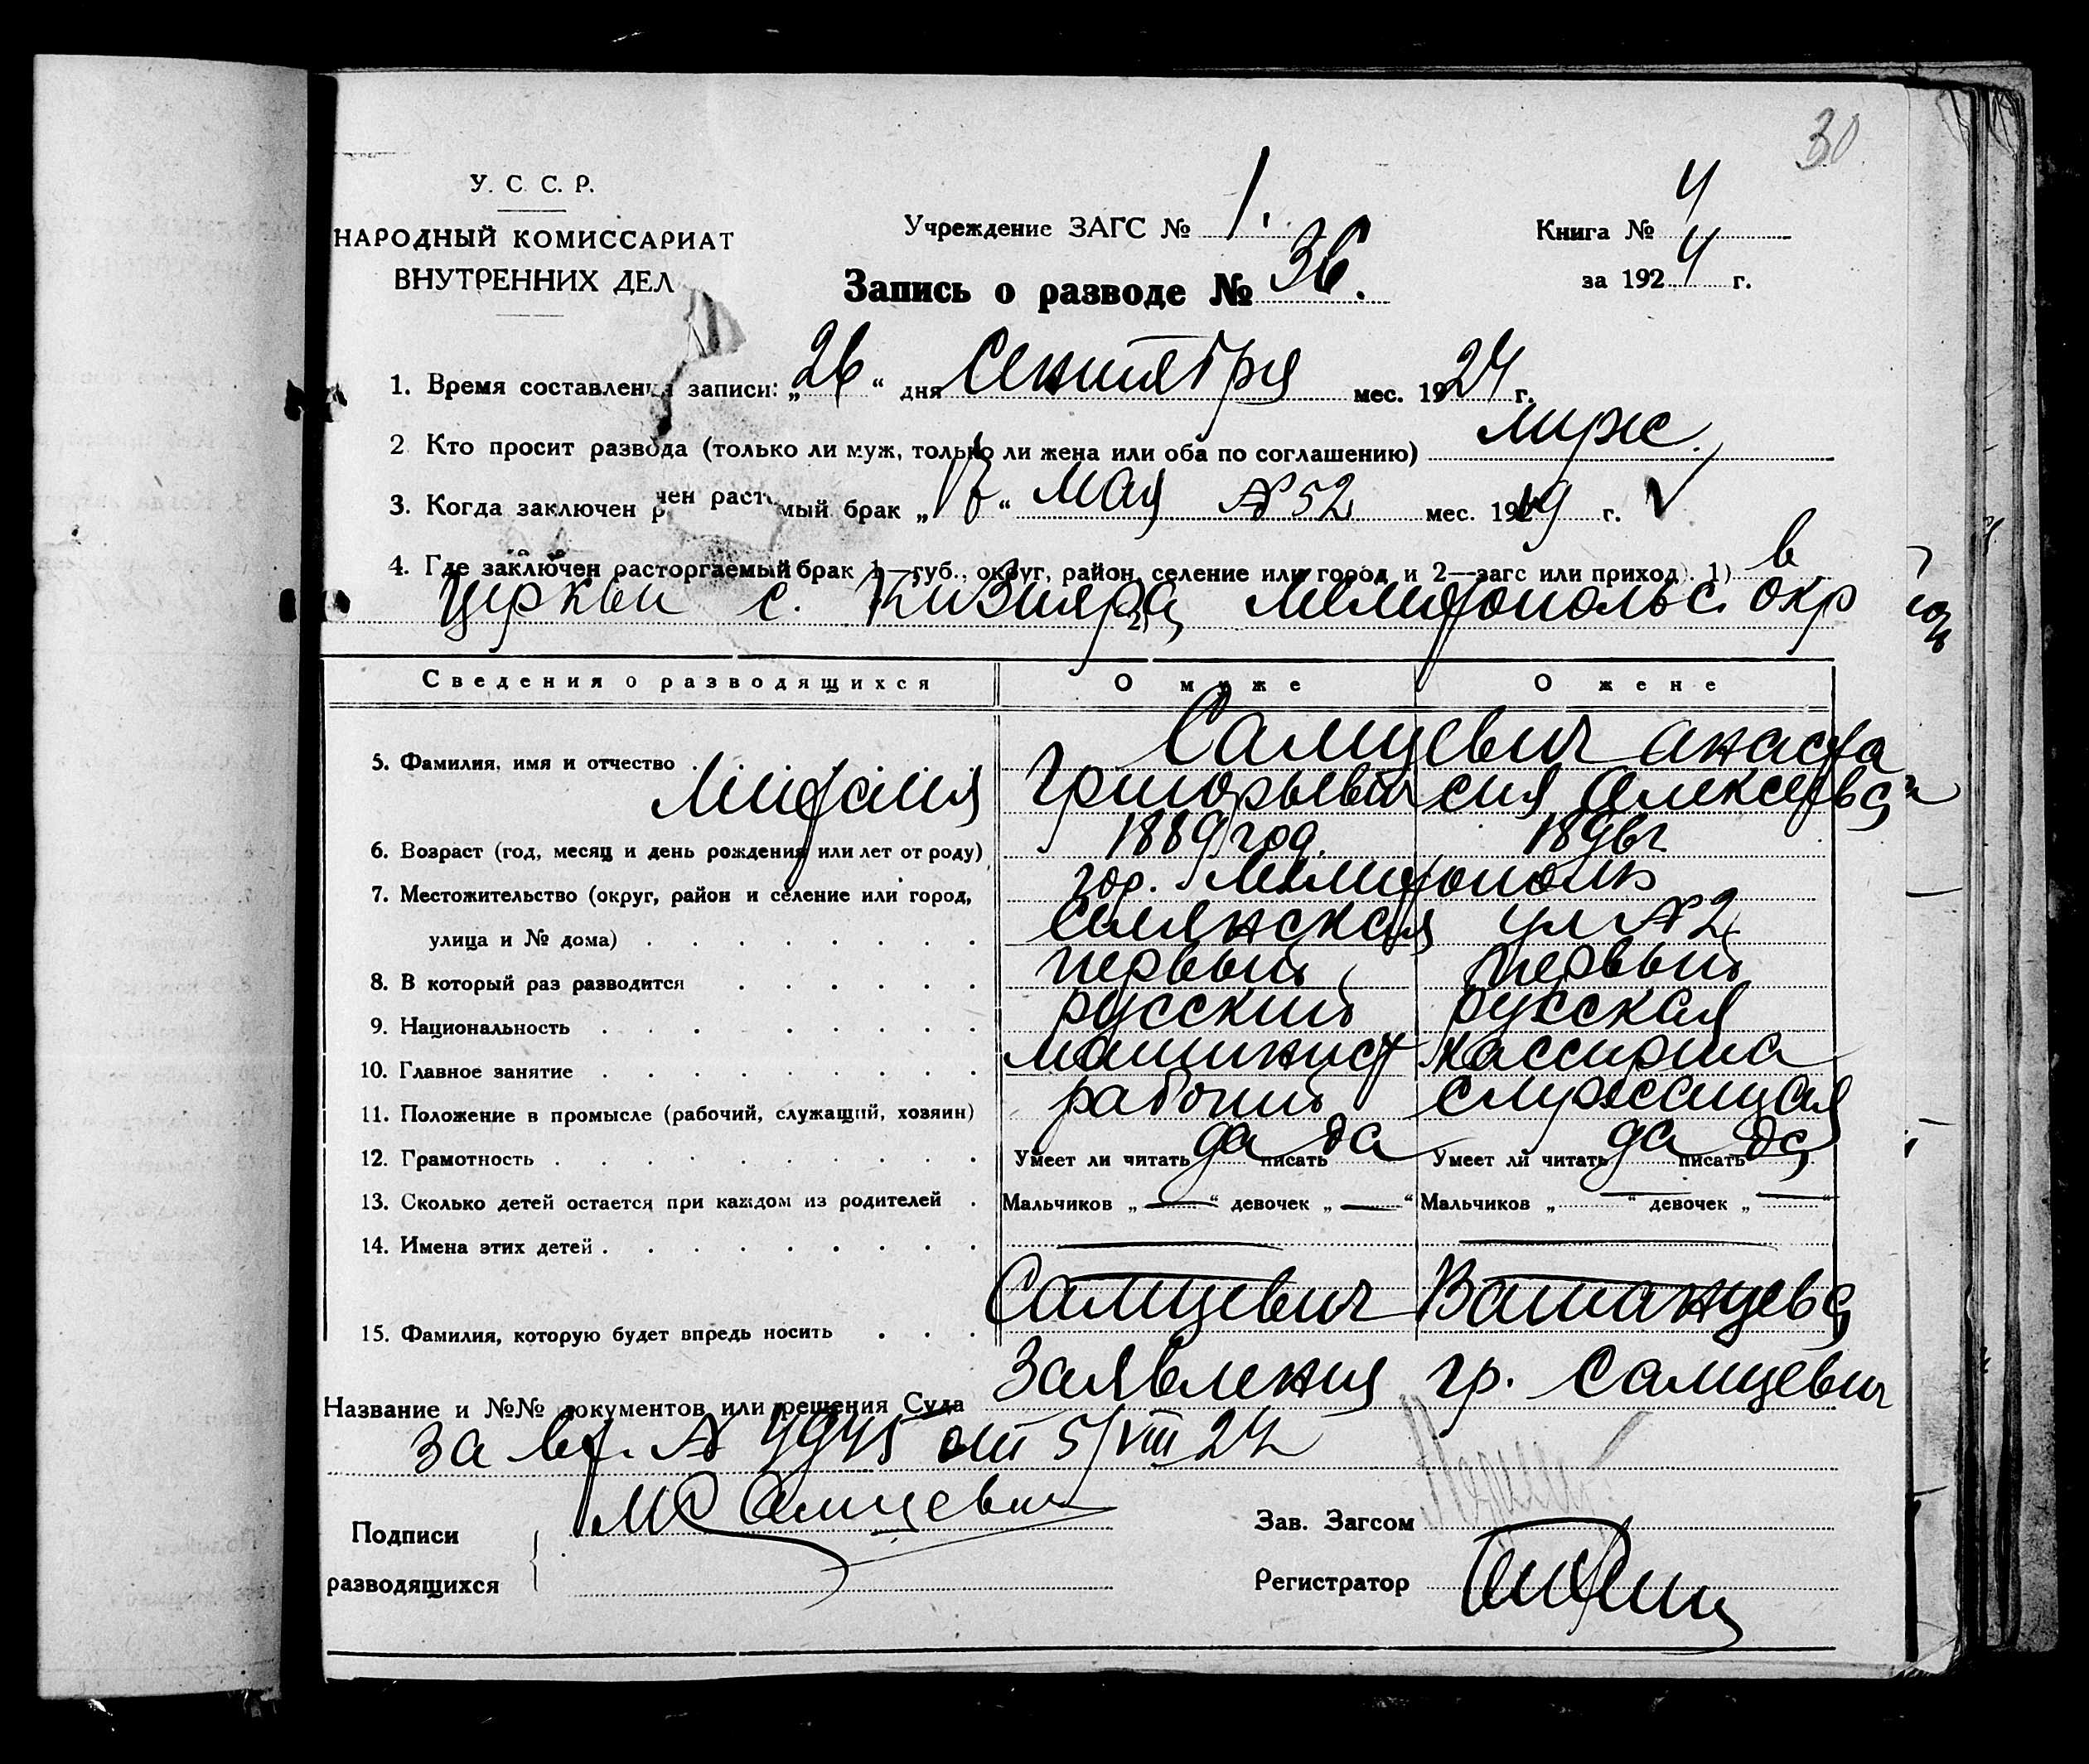 30
У. С. С. Р.
НАРОДНЫЙ КОМИССАРИАТ
ВНУТРЕННИХ ДЕЛ
Учреждение ЗАГС № 1.
Книга № 4
за 1924 г.
Запись о разводе № 36.
1. Время составления записи: „26“ дня Сентября мес. 1924 г.
2 Кто просит развода (только ли муж, только ли жена или оба по соглашению) муж.
3. Когда заключен мый брак „17“ Мая № 52 мес. 1919 г. V
4. Где заключен расторгаемый брак 1—губ., округ, район, селение или город и 2—загс или приход). 1) в
Церкви с. Кизияра, Мелитопольс. окр
2)
Сведения о разводящихся О муже О жене
5. Фамилия, имя и отчество . Самцевич Анаста
Митрофан Григорьевич сия Алексеевн
6. Возраст (год, месяц и день рождения или лет от роду) 1889 год. 1896г
7. Местожительство (округ, район и селение или город, гор. Мелитополь
улица и № дома) Селянская ул № 2
8. В который раз разводится первый первый
9. Национальность русский русская
10. Главное занятие машинист кассирша
11. Положение в промысле (рабочий, служащий, хозяин) рабочий служащая
12. Грамотность Умеет ли читать да писать да Умеет ли читать да писать да
13. Сколько детей остается при каждом из родителей . Мальчиков „—“ девочек „—“ Мальчиков „—“ девочек „—“
14. Имена этих детей — —
15. Фамилия, которую будет впредь носить Самцевич Ваманцева
Название и №№ документов или решения Суда Заявления гр. Самцевич
за вх. № 4945 от 5/VIII 24
Подписи М Самцевич
разводящихся
Зав. Загсом
Регистратор